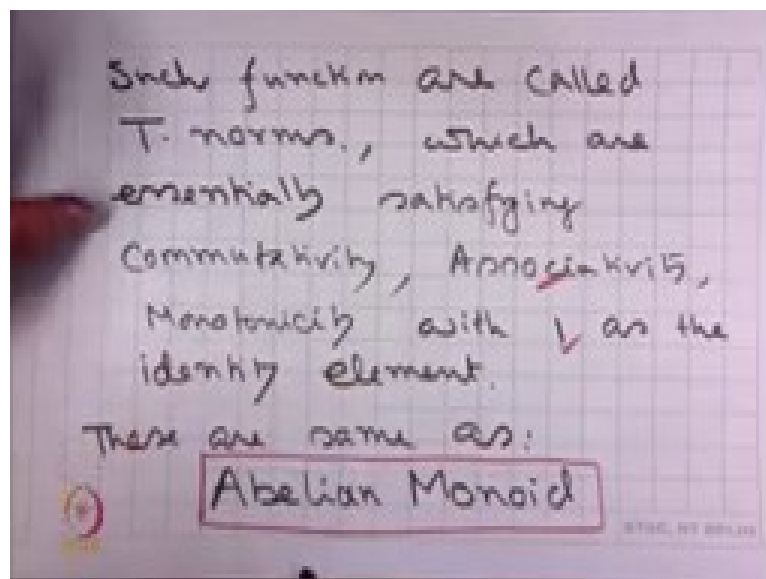 Such function are called
T-norms., which are
essentially satisfying
Commutativity, Associativity,
Monotonicity with 1 as the
identity element.
These are same as:
Abelian Monoid
ETSC, IIT DELHI